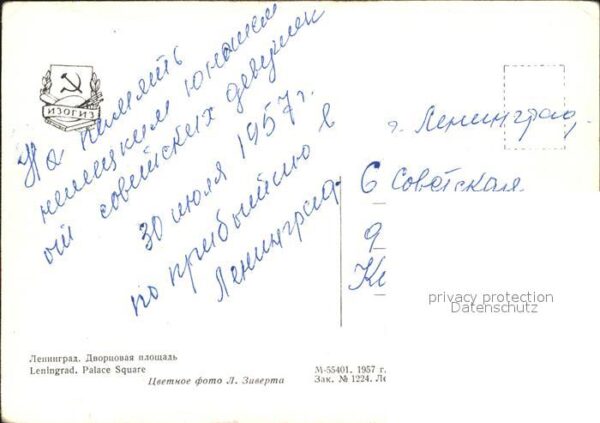 ИЗОГИЗ
На память
немецким юношам
от советских девушек
30 июля 1957 г.
по прибытию в
Ленинград.
г. Ленинград.
6 Советская
privacy protection
Datenschutz
Ленинград. Дворцовая площадь
Leningrad. Palace Square
Цветное фото Л. Зиверта
М-55401. 1957 г.
Зак. № 1224.